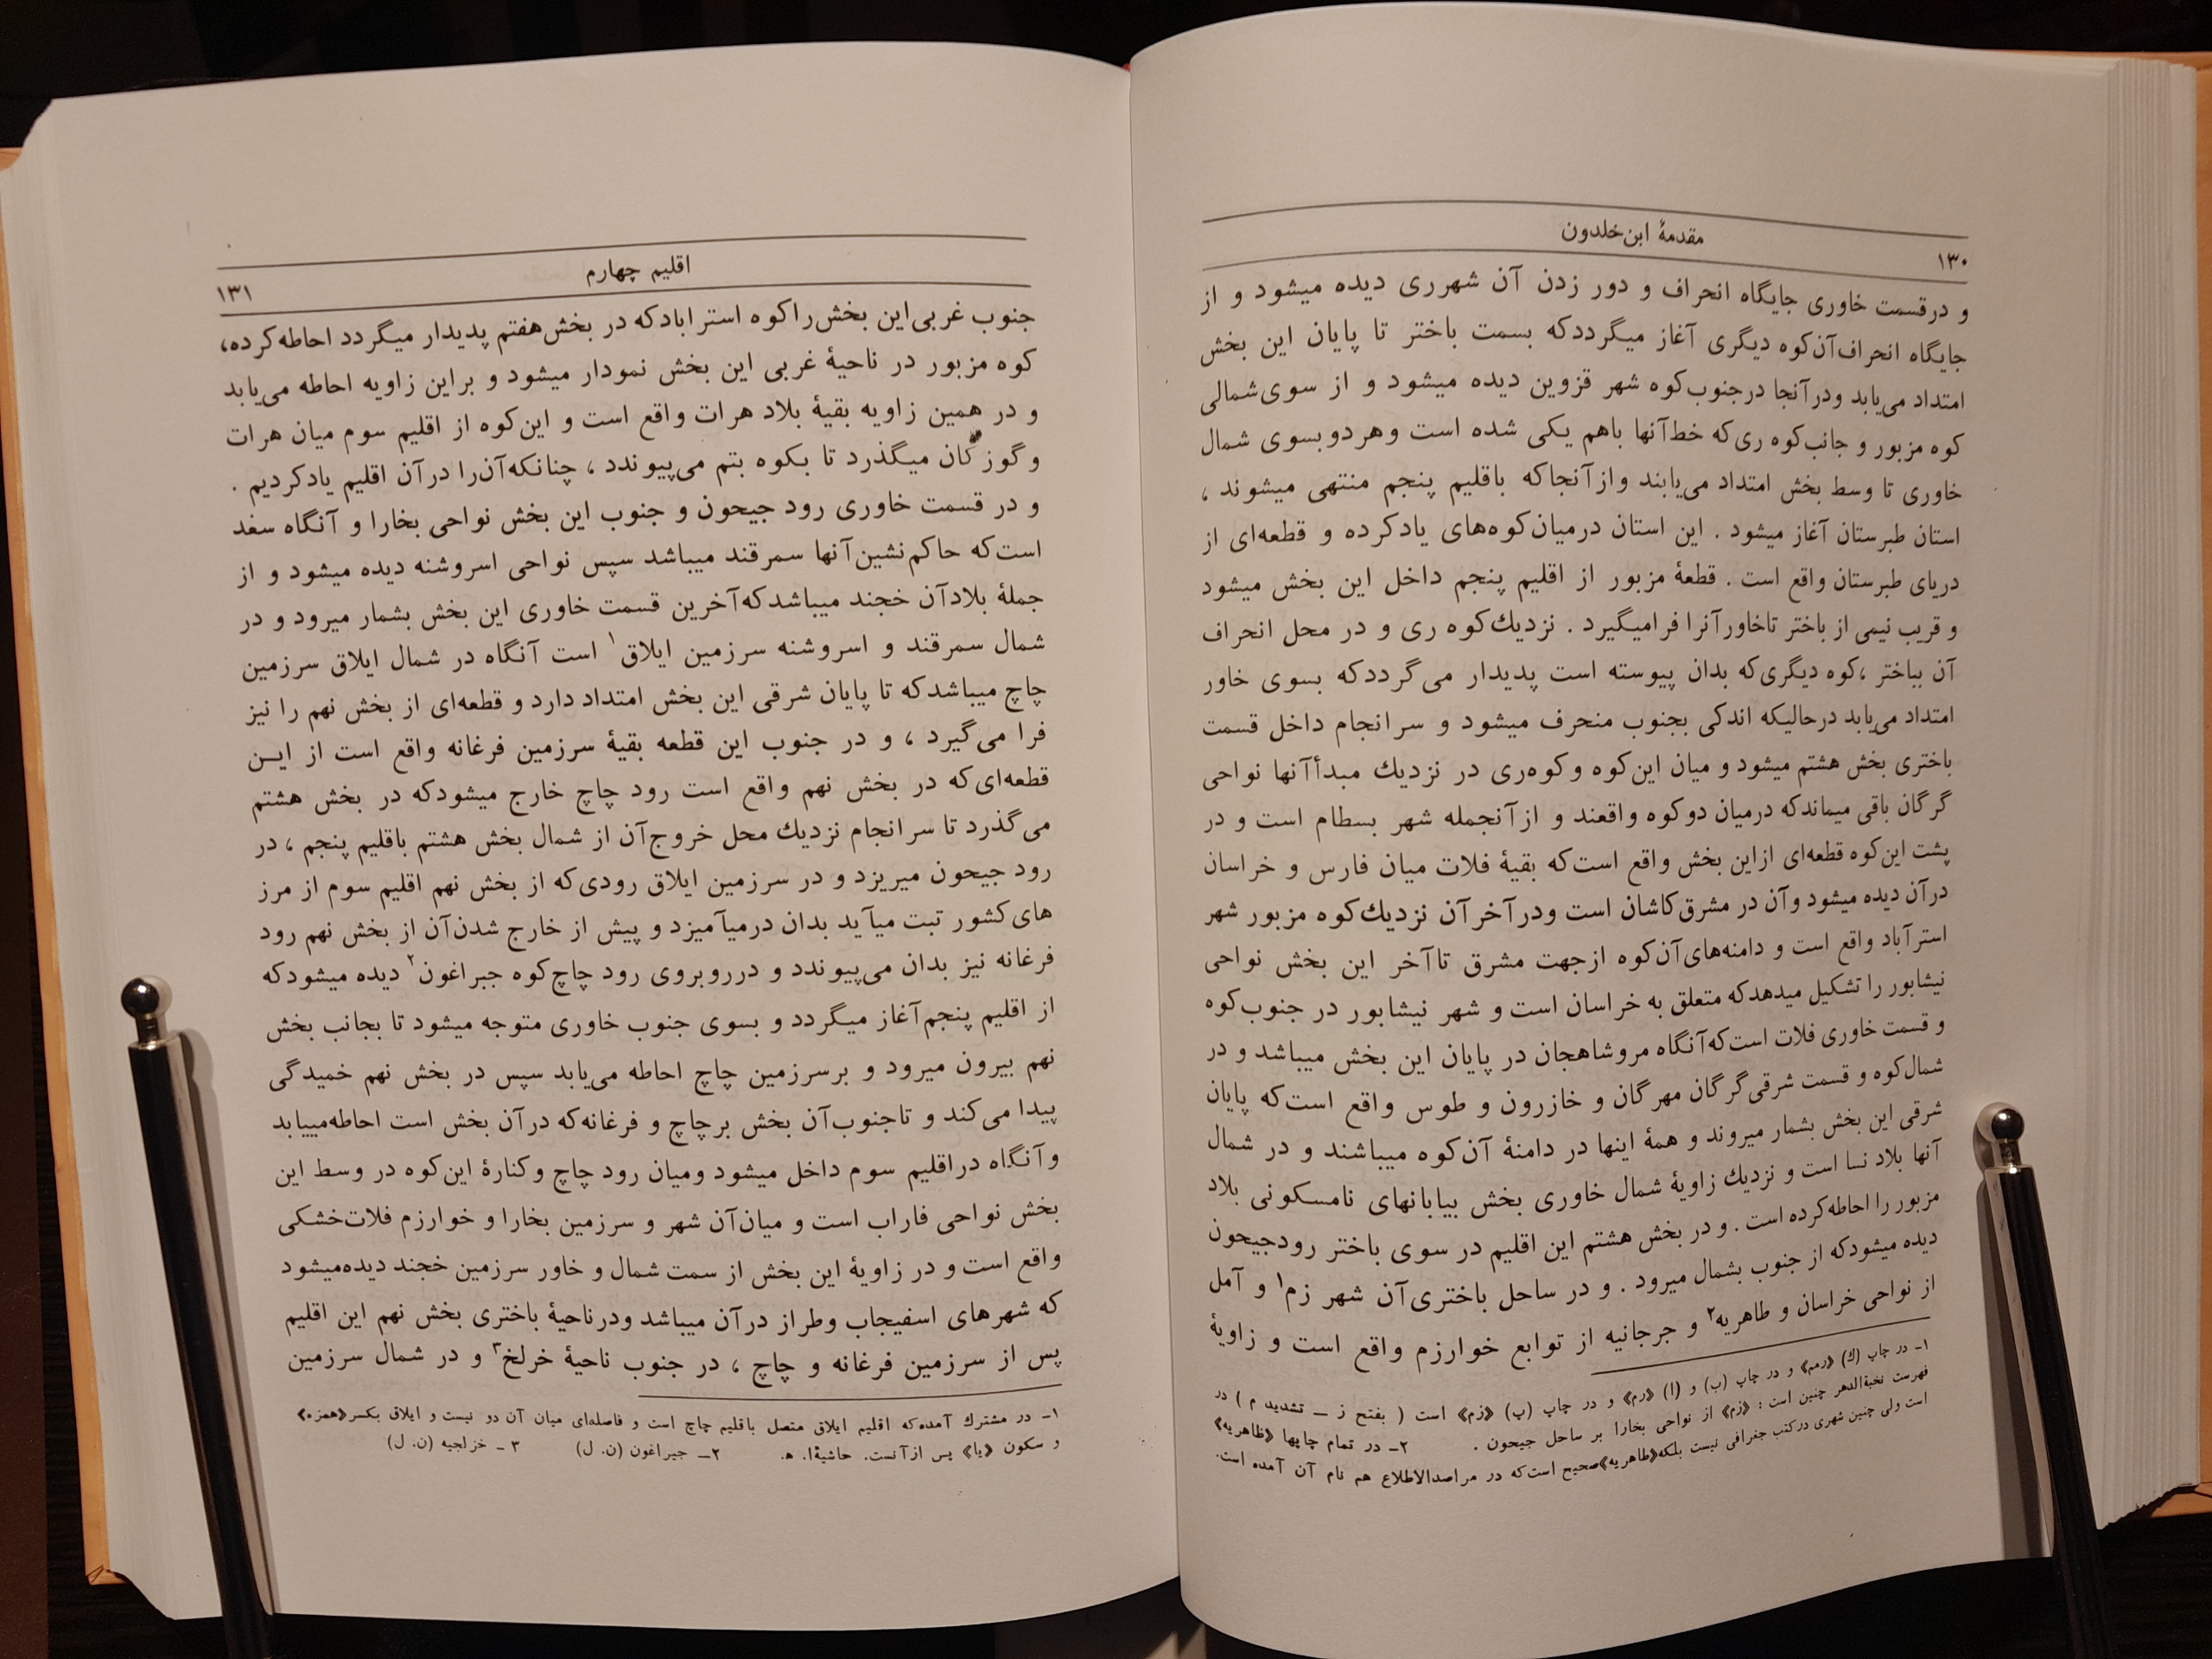 ۱۳۰
مقدمهٔ ابن‌خلدون
و درقسمت خاوری جایگاه انحراف و دور زدن آن شهرری دیده میشود و از
جایگاه انحراف‌آن‌کوه دیگری آغاز میگرددکه بسمت باختر تا پایان این بخش
امتداد می‌یابد ودرآنجا درجنوب‌کوه شهر قزوین دیده میشود و از سوی‌شمالی
کوه مزبور و جانب‌کوه ری‌که خط‌آنها باهم یکی شده است وهردوبسوی شمال
خاوری تا وسط بخش امتداد می‌یابند وازآنجاکه باقلیم پنجم منتهی میشوند ،
استان طبرستان آغاز میشود . این استان درمیان‌کوه‌های یادکرده و قطعه‌ای از
دریای طبرستان واقع است . قطعهٔ مزبور از اقلیم پنجم داخل این بخش میشود
و قریب نیمی از باختر تاخاورآنرا فرامیگیرد . نزدیك‌کوه ری و در محل انحراف
آن بباختر ،کوه دیگری‌که بدان پیوسته است پدیدار می‌گرددکه بسوی خاور
امتداد می‌یابد درحالیکه اندکی بجنوب منحرف میشود و سرانجام داخل قسمت
باختری بخش هشتم میشود و میان این‌کوه وکوه‌ری در نزدیك مبدأآنها نواحی
گرگان باقی میماندکه درمیان دوکوه واقعند و ازآنجمله شهر بسطام است و در
پشت این‌کوه قطعه‌ای ازاین بخش واقع است‌که بقیهٔ فلات میان فارس و خراسان
درآن دیده میشود وآن در مشرق‌کاشان است ودرآخرآن نزدیك‌کوه مزبور شهر
استرآباد واقع است و دامنه‌های‌آن‌کوه ازجهت مشرق تاآخر این بخش نواحی
نیشابور را تشکیل میدهدکه متعلق به خراسان است و شهر نیشابور در جنوب‌کوه
و قسمت خاوری فلات است‌که‌آنگاه مروشاهجان در پایان این بخش میباشد و در
شمال‌کوه و قسمت شرقی‌گرگان مهرگان و خازرون و طوس واقع است‌که پایان
شرقی این بخش بشمار میروند و همهٔ اینها در دامنهٔ آن‌کوه میباشند و در شمال
آنها بلاد نسا است و نزدیك زاویهٔ شمال خاوری بخش بیابانهای نامسکونی بلاد
مزبور را احاطه‌کرده است . و در بخش هشتم این اقلیم در سوی باختر رودجیحون
دیده میشودکه از جنوب بشمال میرود . و در ساحل باختری‌آن شهر زم۱ و آمل
از نواحی خراسان و طاهریه۲ و جرجانیه از توابع خوارزم واقع است و زاویهٔ
۱ـ در چاپ (ك) «رمم» و در چاپ (ب) و (ا) «رم» و در چاپ (پ) «زم» است ( بفتح ز ــ تشدید م ) در
فهرست نخبةالدهر چنین است : «زم» از نواحی بخارا بر ساحل جیحون . ۲ـ در تمام چاپها «ظاهریه»
است ولی چنین شهری درکتب جغرافی نیست بلکه«طاهریه»صحیح است‌که در مراصدالاطلاع هم نام آن آمده است.
اقلیم چهارم
۱۳۱
جنوب غربی‌این بخش‌راکوه استرابادکه در بخش‌هفتم پدیدار میگردد احاطه‌کرده،
کوه مزبور در ناحیهٔ غربی این بخش نمودار میشود و براین زاویه احاطه می‌یابد
و در همین زاویه بقیهٔ بلاد هرات واقع است و این‌کوه از اقلیم سوم میان هرات
وگوزکان میگذرد تا بکوه بتم می‌پیوندد ، چنانکه‌آن‌را درآن اقلیم یادکردیم .
و در قسمت خاوری رود جیحون و جنوب این بخش نواحی بخارا و آنگاه سغد
است‌که حاکم‌نشین‌آنها سمرقند میباشد سپس نواحی اسروشنه دیده میشود و از
جملهٔ بلادآن خجند میباشدکه‌آخرین قسمت خاوری این بخش بشمار میرود و در
شمال سمرقند و اسروشنه سرزمین ایلاق۱ است آنگاه در شمال ایلاق سرزمین
چاچ میباشدکه تا پایان شرقی این بخش امتداد دارد و قطعه‌ای از بخش نهم را نیز
فرا می‌گیرد ، و در جنوب این قطعه بقیهٔ سرزمین فرغانه واقع است از ایــن
قطعه‌ای‌که در بخش نهم واقع است رود چاچ خارج میشودکه در بخش هشتم
می‌گذرد تا سرانجام نزدیك محل خروج‌آن از شمال بخش هشتم باقلیم پنجم ، در
رود جیحون میریزد و در سرزمین ایلاق رودی‌که از بخش نهم اقلیم سوم از مرز
های‌کشور تبت میآید بدان درمیآمیزد و پیش از خارج شدن‌آن از بخش نهم رود
فرغانه نیز بدان می‌پیوندد و درروبروی رود چاچ‌کوه جبراغون۲ دیده میشودکه
از اقلیم پنجم‌آغاز میگردد و بسوی جنوب خاوری متوجه میشود تا بجانب بخش
نهم بیرون میرود و برسرزمین چاچ احاطه می‌یابد سپس در بخش نهم خمیدگی
پیدا می‌کند و تاجنوب‌آن بخش برچاچ و فرغانه‌که درآن بخش است احاطه‌مییابد
وآنگاه دراقلیم سوم داخل میشود ومیان رود چاچ وکنارهٔ این‌کوه در وسط این
بخش نواحی فاراب است و میان‌آن شهر و سرزمین بخارا و خوارزم فلات‌خشکی
واقع است و در زاویهٔ این بخش از سمت شمال و خاور سرزمین خجند دیده‌میشود
که شهرهای اسفیجاب وطراز درآن میباشد ودرناحیهٔ باختری بخش نهم این اقلیم
پس از سرزمین فرغانه و چاچ ، در جنوب ناحیهٔ خرلخ۳ و در شمال سرزمین
۱ـ در مشترك آمده‌که اقلیم ایلاق متصل باقلیم چاچ است و فاصله‌ای میان آن دو نیست و ایلاق بکسر«همزه»
و سکون «یا» پس ازآنست. حاشیهٔا. ه. ۲ــ جیراغون (ن. ل) ۳ ـ خزلجیه (ن. ل)